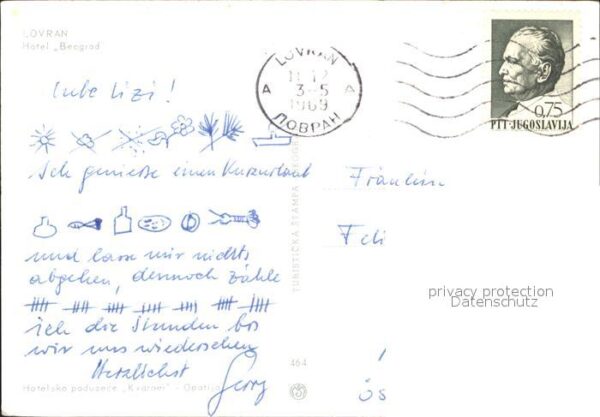 LOVRAN
Hotel „Beograd
Liebe Lizi!
Ich genieße einen Kurzurlaub
und lass mir nichts
abgehen, dennoch zähle
ich die Stunden bis
wir uns wiedersehen
Herzlichst
Hotelsko poduzeće "Kvarner" - Opatija
464
TURISTIČKA ŠTAMPA
LOVRAN
11-12
3-5
1969
A A
ЛОВРАН
0,75
PTT-JUGOSLAVIJA
Fräulein
privacy protection
Datenschutz